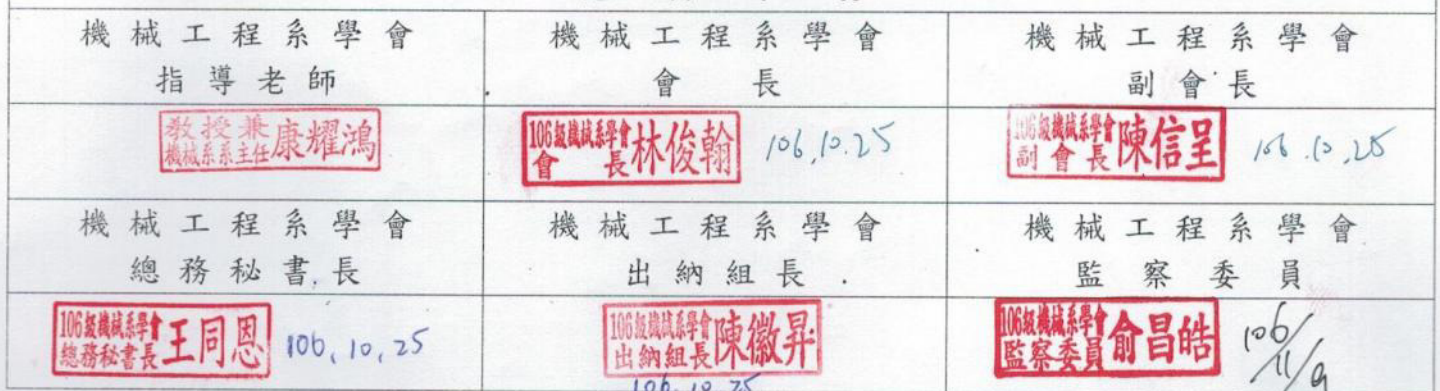 機械工程系學會
指導老師
機械工程系學會
會長
機械工程系學會
副會長
教授兼
機械系系主任
康耀鴻
106級機械系學會
會長
林俊翰
106.10.25
106級機械系學會
副會長
陳信呈
106.10.25
機械工程系學會
總務秘書長
機械工程系學會
出納組長
機械工程系學會
監察委員
106級機械系學會
總務秘書長
王同恩
106.10.25
106級機械系學會
出納組長
陳徽昇
106.10.25
106級機械系學會
監察委員
俞昌皓
106/11/9